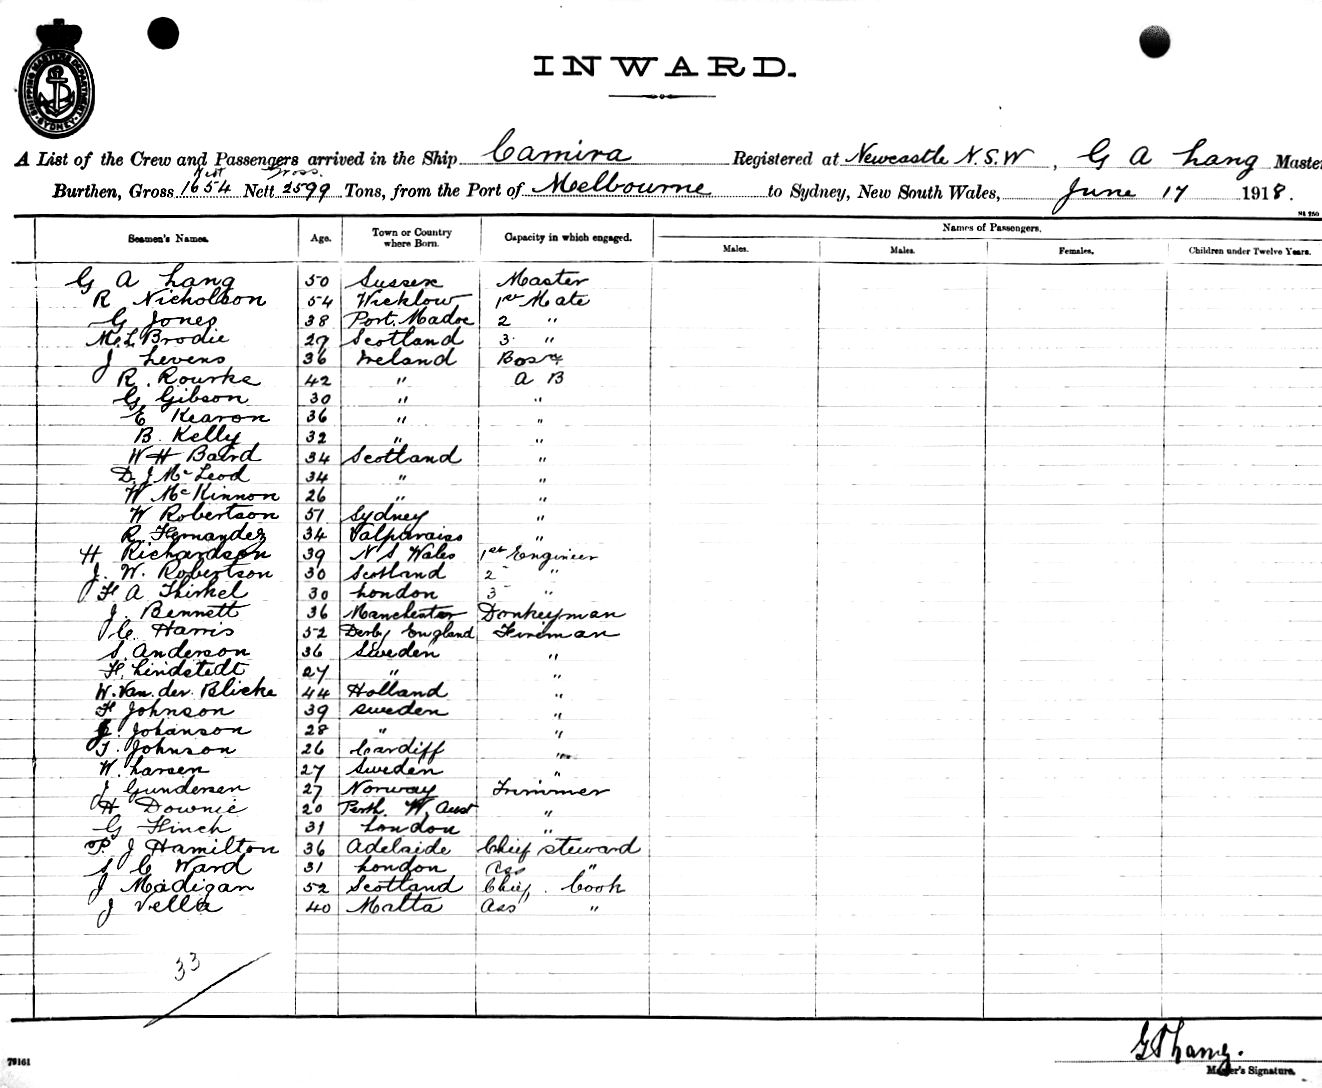 SHIPPING MASTERS DEPARTMENT SYDNEY
INWARD.
A List of the Crew and Passengers arrived in the Ship Camira Registered at Newcastle N.S.W, G A Lang Master
Nett Gross
Burthen, Gross 1654 Nett 2599 Tons, from the Port of Melbourne to Sydney, New South Wales, June 17 1918.
Seamen's Names. Age. Town or Country where Born. Capacity in which engaged. Names of Passengers.
Males. Males. Females. Children under Twelve Years.
G A Lang 50 Sussex Master
R Nicholson 54 Wicklow 1st Mate
G Jones 38 Port Madoc 2 "
M. L. Brodie 29 Scotland 3 "
J Levens 36 Ireland
R. Rourke 42 " A B
G Gibson 30 " "
E Kearon 36 " "
B. Kelly 32 " "
W H Baird 34 Scotland "
D. J McLeod 34 " "
W McKinnon 26 " "
W Robertson 51 Sydney "
R. Fernandez 34 Valparaiso "
H Richardson 39 N S Wales 1st Engineer
J. W. Robertson 30 Scotland 2 "
F A Thirkel 30 London 3 "
J. Bennett 36 Manchester Donkeyman
C Harris 52 Derby England Fireman
S. Anderson 36 Sweden "
F. Lindstedt 27 " "
W. Van. der. Blicke 44 Holland "
F Johnson 39 Sweden "
Johanson 28 " "
T. Johnson 26 Cardiff "
W. Larsen 27 Sweden "
J Gundersen 27 Norway Trimmer
H Downie 20 Perth. W. Aust "
G Finch 31 London "
P J Hamilton 36 Adelaide Chief Steward
S C Ward 31 London Ass "
J Madigan 52 Scotland Chief. Cook
J Vella 40 Malta Ass "
33
G A Lang.
Master's Signature.
79161